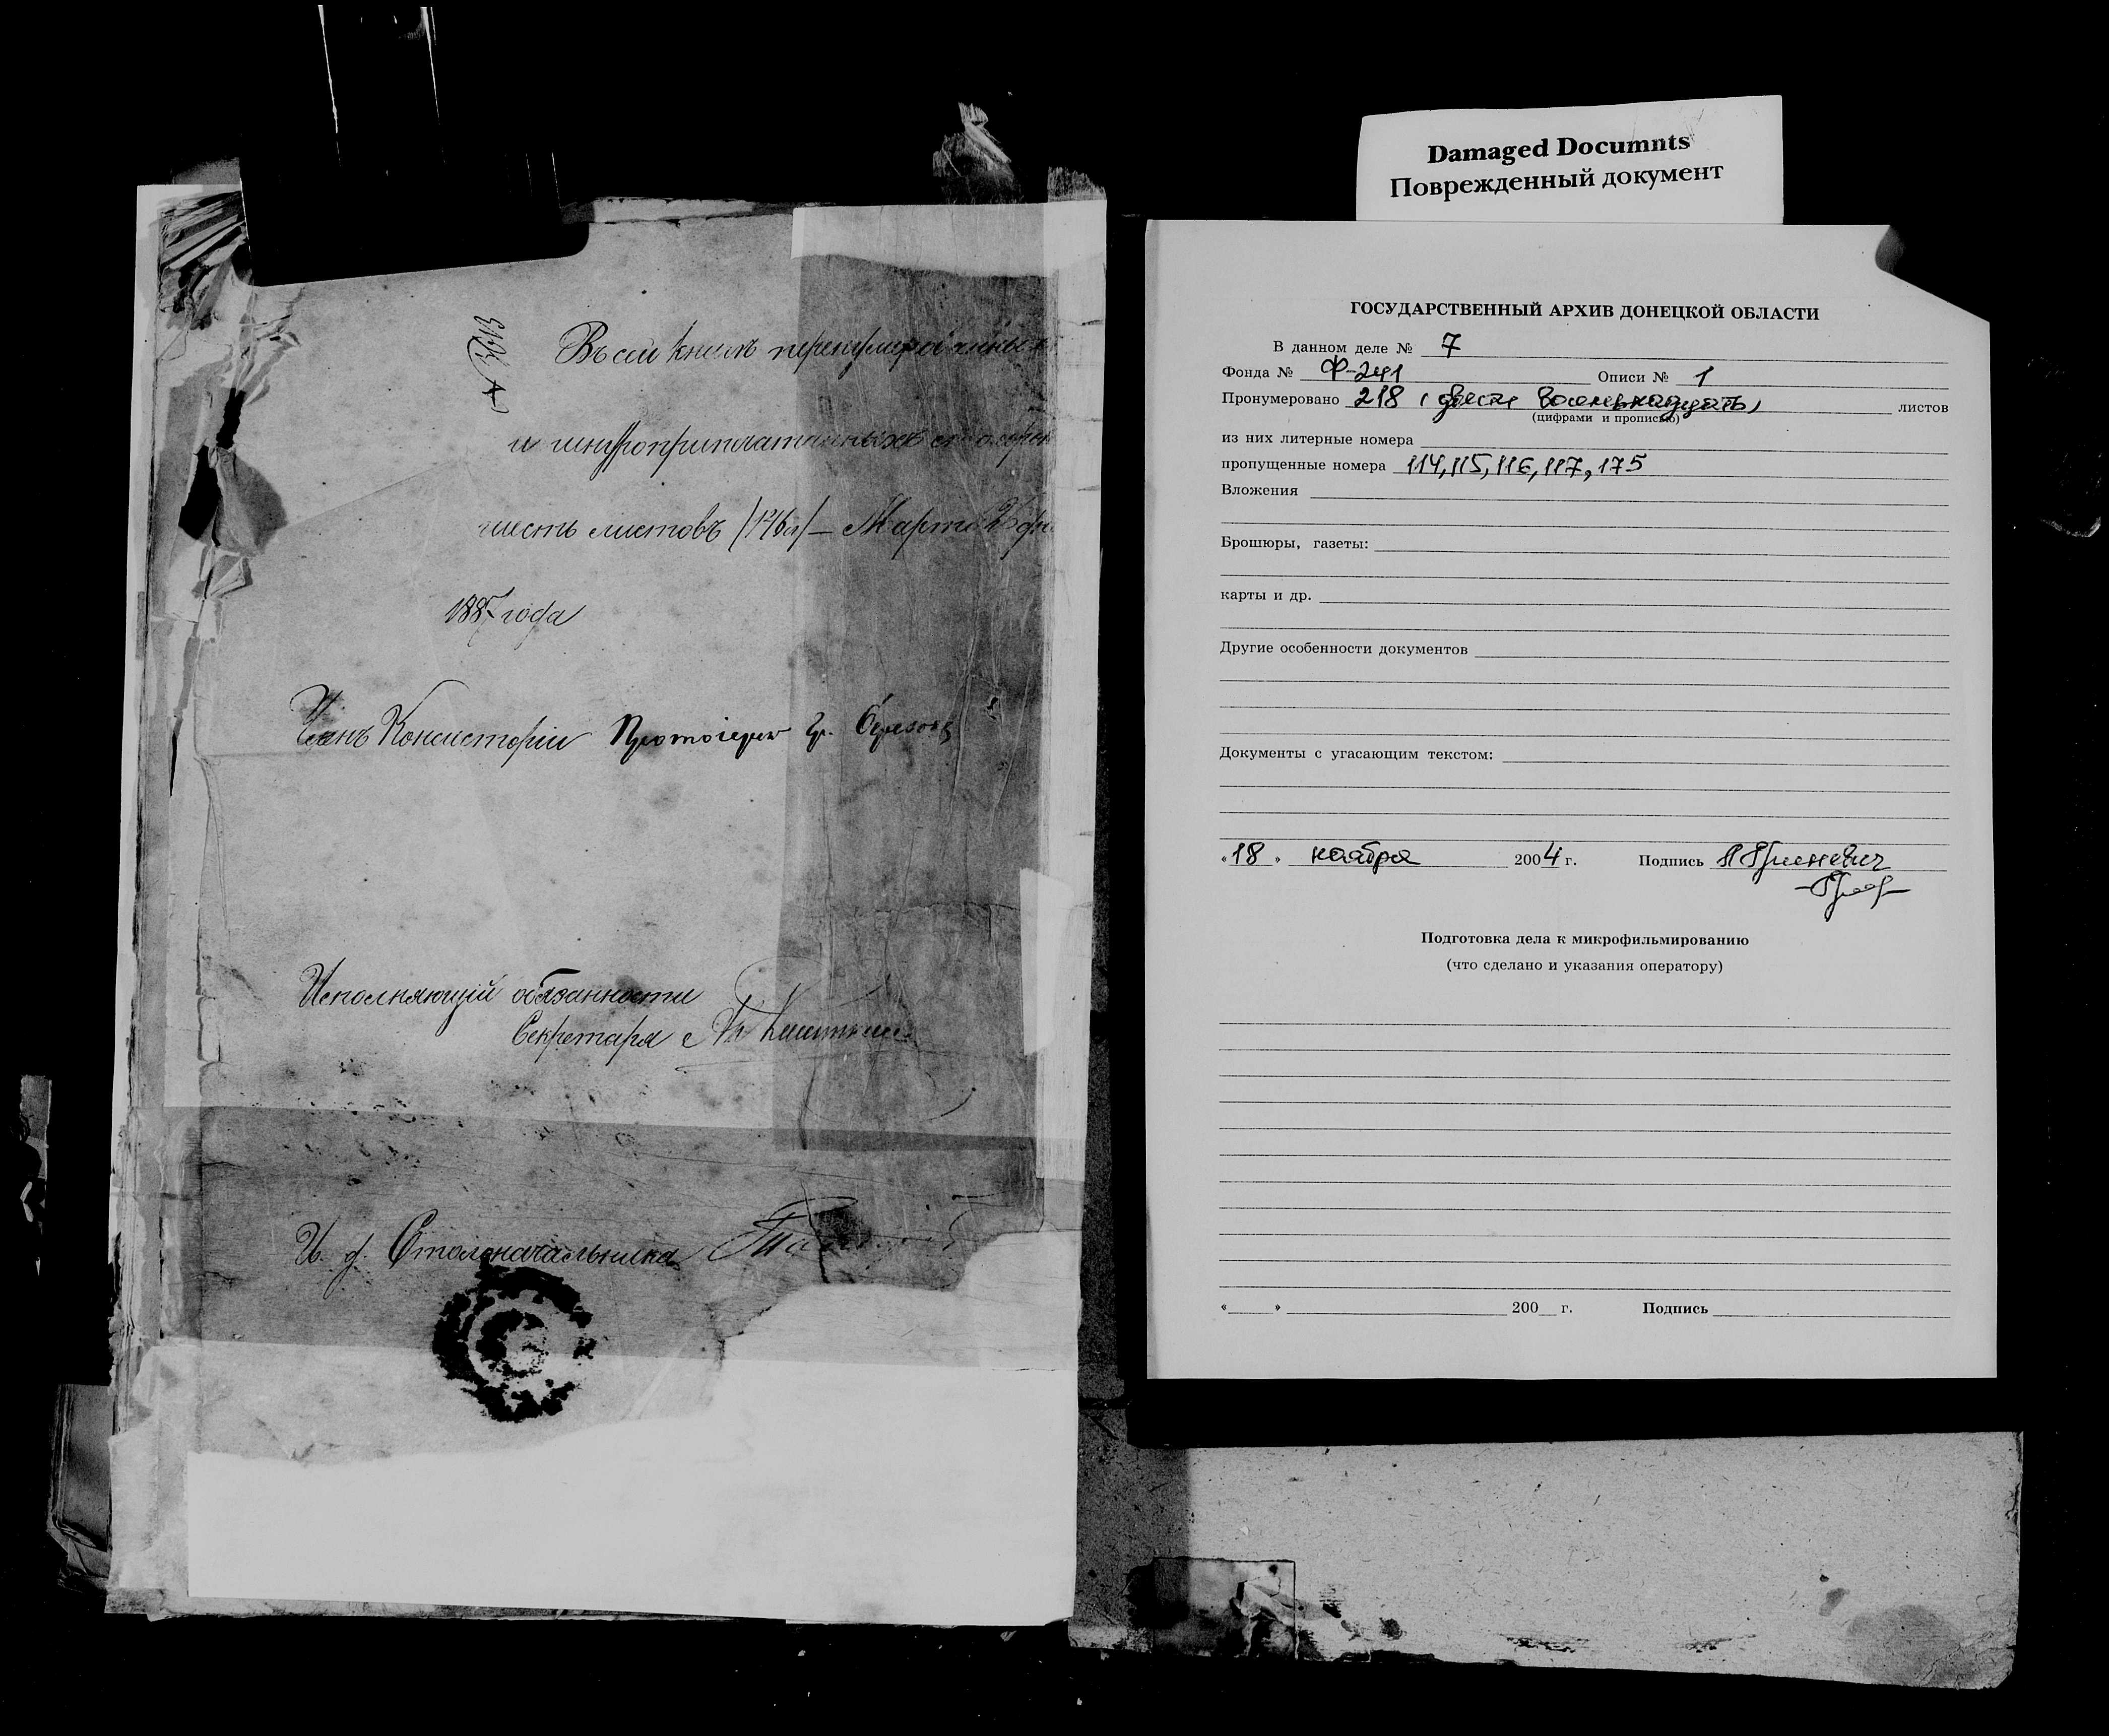 Въ сей книгѣ перенумерованныхъ
и шнуроприпечатанныхъ сто сорок
шесть листовъ (146 л) — Марта
1887 года
Членъ Консисторіи Протоіерей Гр.
Исполняющій обязанности
Секретаря
И. д. Столоначальника
Damaged Documnts
Поврежденный документ
ГОСУДАРСТВЕННЫЙ АРХИВ ДОНЕЦКОЙ ОБЛАСТИ
В данном деле № 7
Фонда № Ф-241 Описи № 1
Пронумеровано 218 (двести восемьнадцать) листов
(цифрами и прописью)
из них литерные номера
пропущенные номера 114, 115, 116, 117, 175
Вложения
Брошюры, газеты:
карты и др.
Другие особенности документов
Документы с угасающим текстом:
«18» ноября 2004 г. Подпись
Подготовка дела к микрофильмированию
(что сделано и указания оператору)
« » 200 г. Подпись